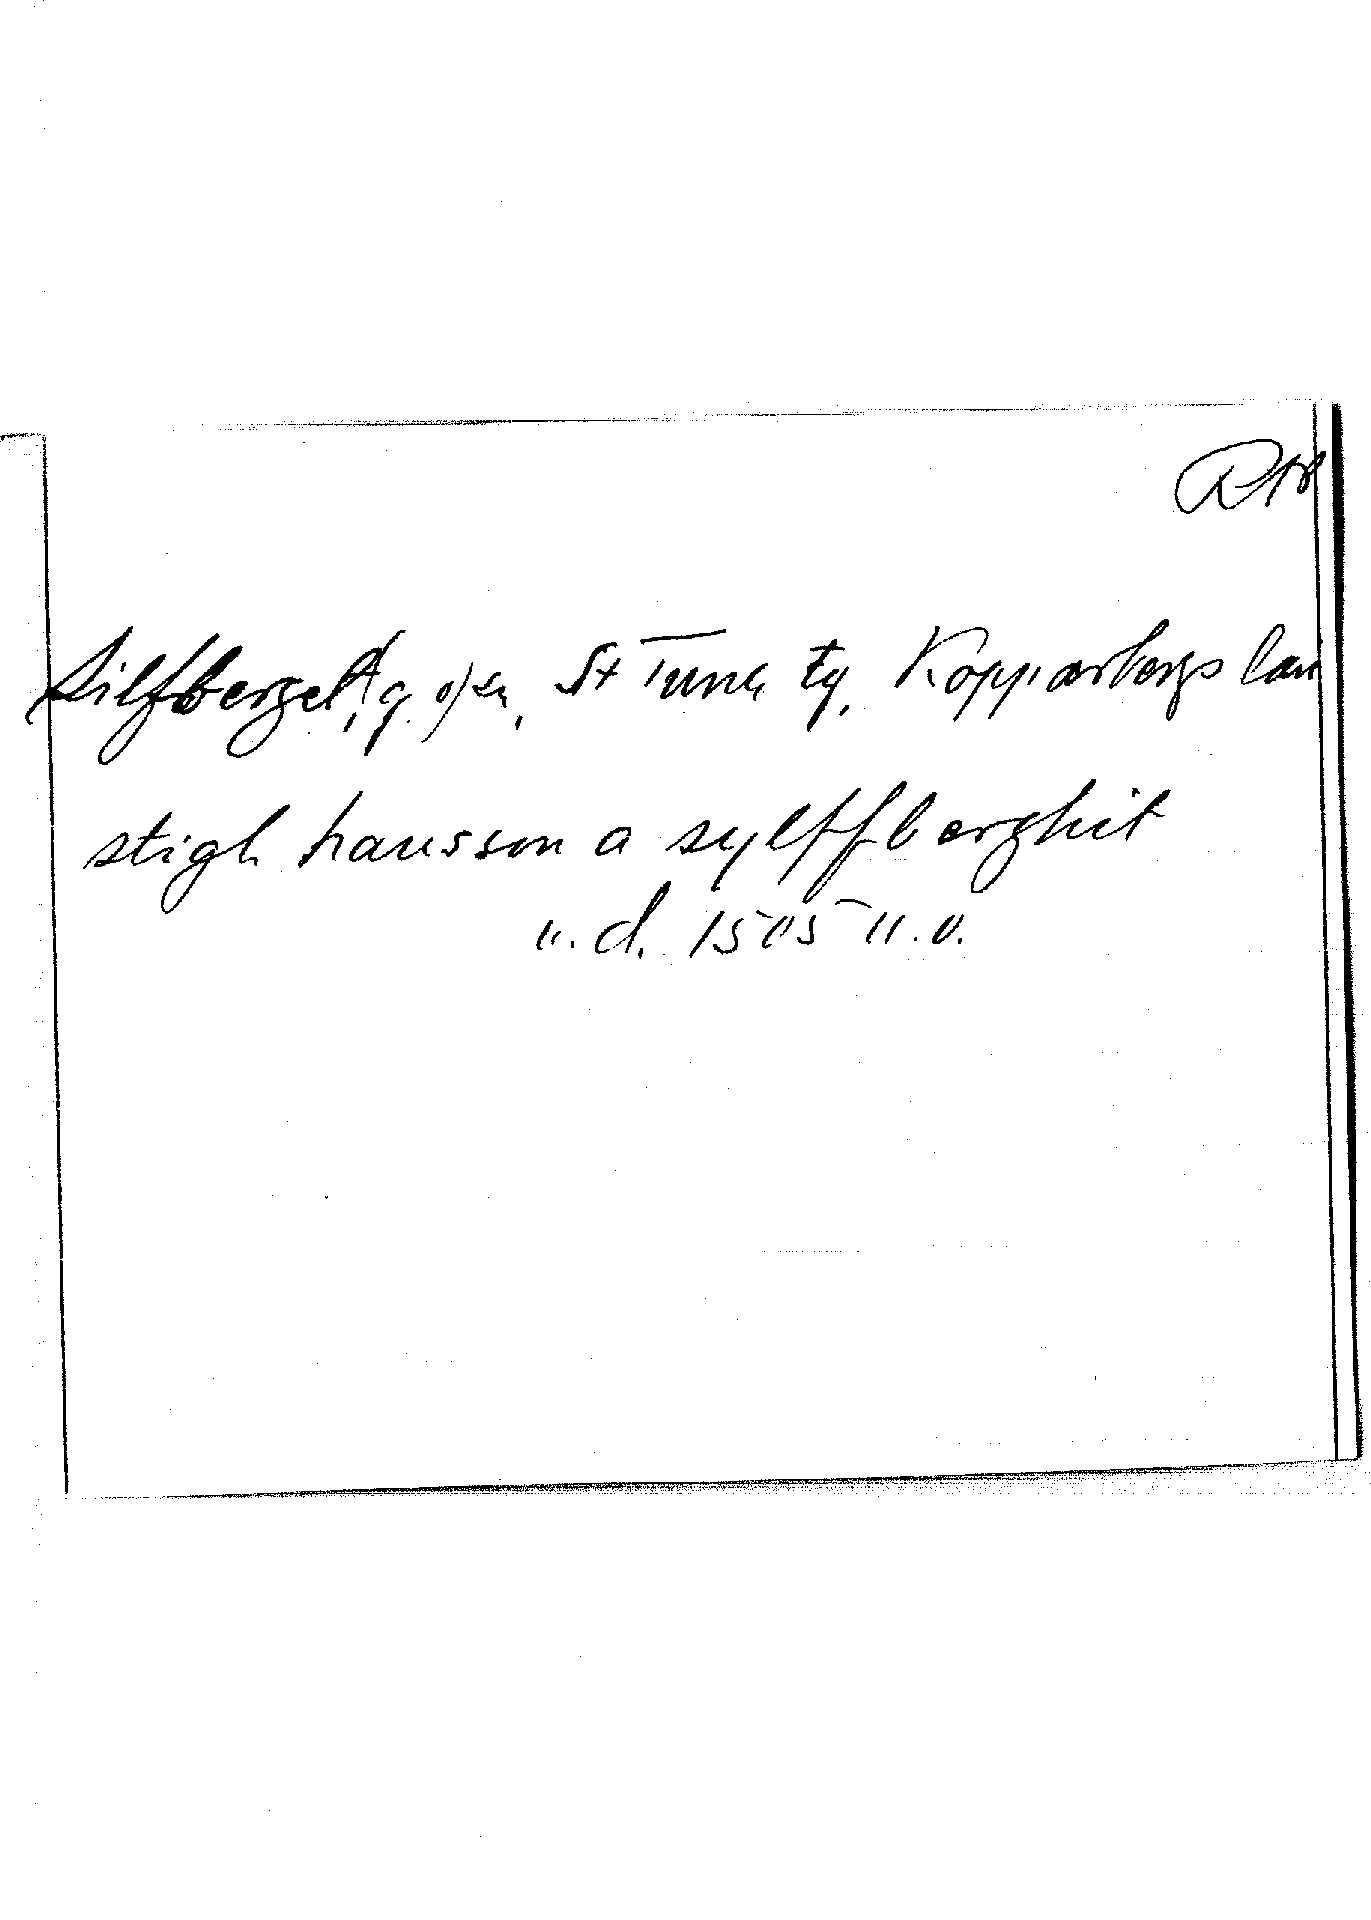 Silfberget, g. o/sn, St Tuna tg, Kopparbergs län
stigh hansson a sylffberghit
u.d. 1505 u.o.